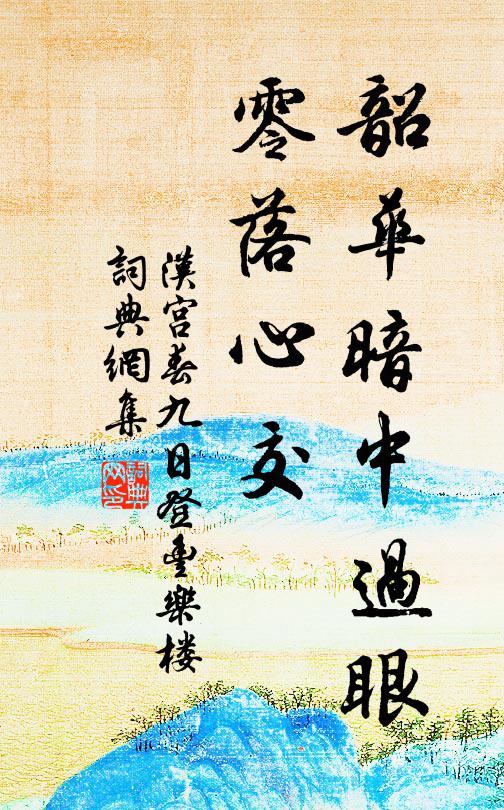 韶華暗中過眼
零落心交
漢宮春九日登豊樂楼
詞典網集